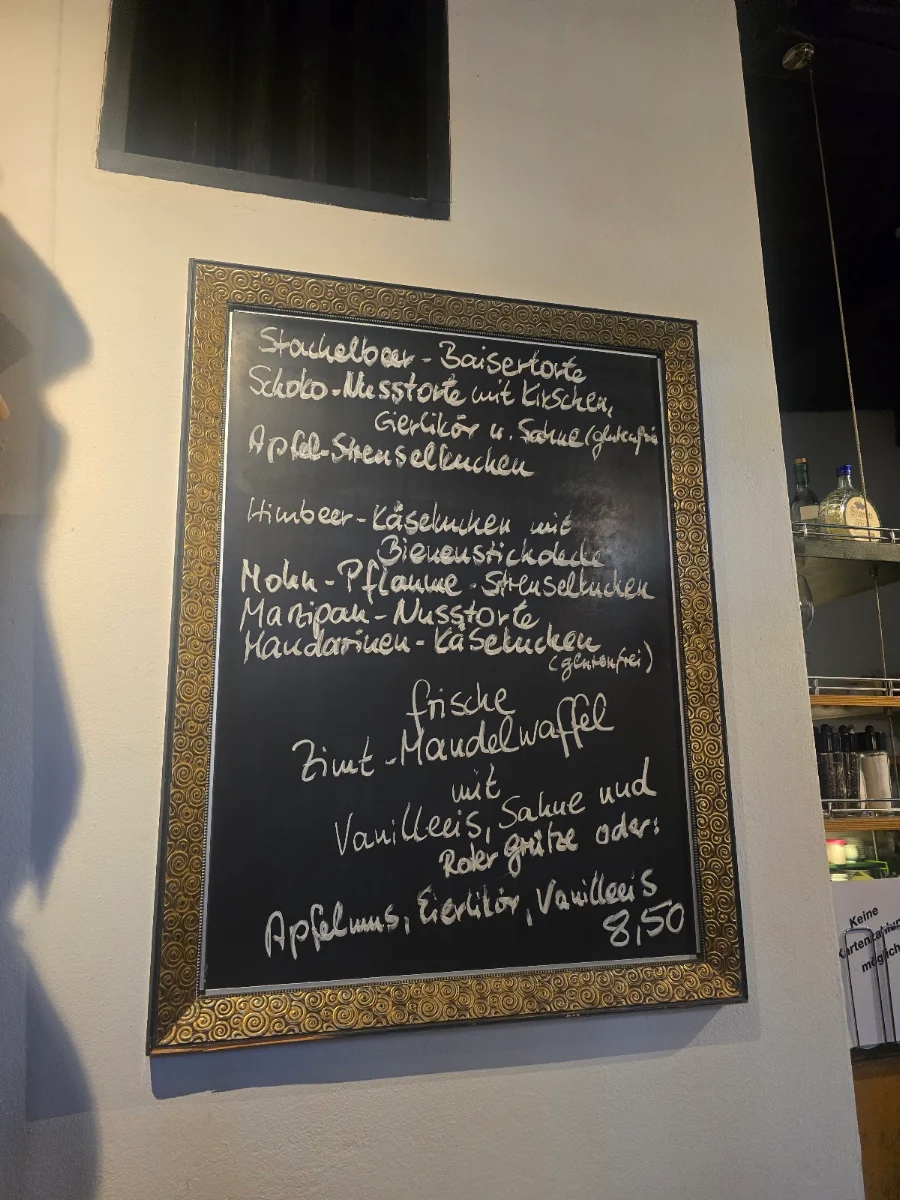 Stachelbeer-Baisertorte
Schoko-Nusstorte mit Kirschen,
Eierlikör u. Sahne (glutenfrei
Apfel-Streuselkuchen
Himbeer-Käsekuchen mit
Bienenstichdecke
Mohn-Pflaume-Streuselkuchen
Marzipan-Nusstorte
Mandarinen-Käsekuchen
(glutenfrei)
frische
Zimt-Mandelwaffel
mit
Vanilleeis, Sahne und
Roter grütze oder:
Apfelmus, Eierlikör, Vanilleeis
8,50
Keine
Kartenzahlung
möglich